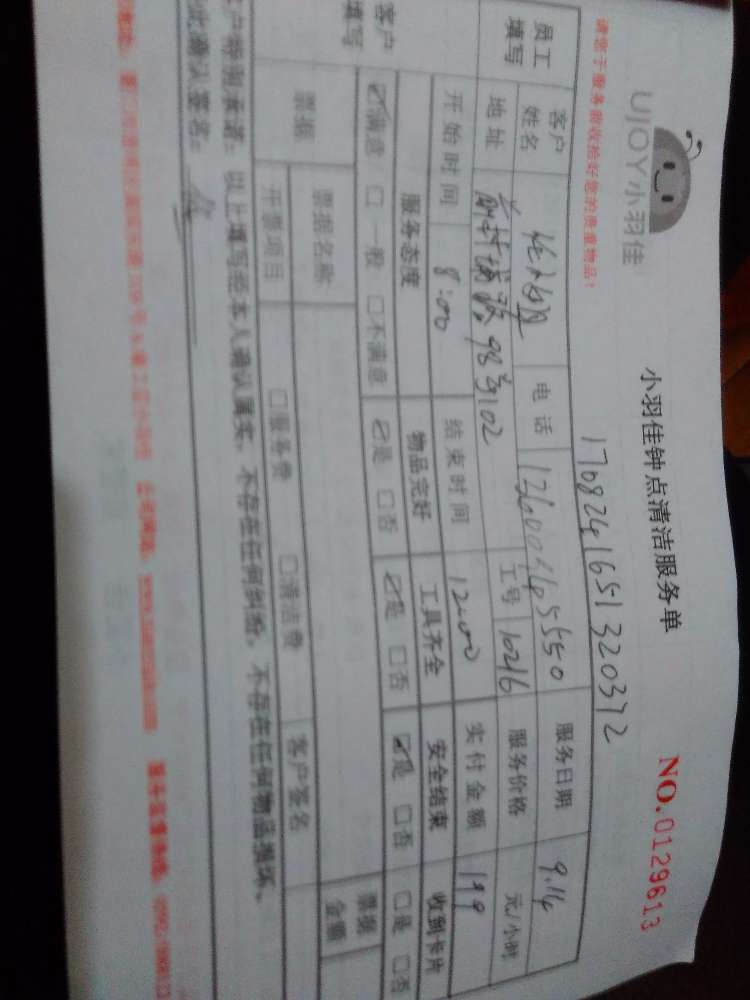 UJOY小羽佳
小羽佳钟点清洁服务单
NO.0129613
请您于服务前收拾好您的贵重物品!
1708241651320372
员工填写
客户姓名 电话 服务日期 9.14
地址 98号102 工号 1026 服务价格 元/小时
开始时间 8:00 结束时间 12:00 实付金额 199
客户填写
服务态度 物品完好 工具齐全 安全结束 收到卡片
☑满意 □一般 □不满意 ☑是 □否 ☑是 □否 ☑是 □否 □是 □否
票据 票据名称 票据金额
开票项目 □服务费 □清洁费 客户签名
客户特别承诺: 以上填写经本人确认属实, 不存在任何纠纷, 不存在任何物品损坏。
特此确认签名: